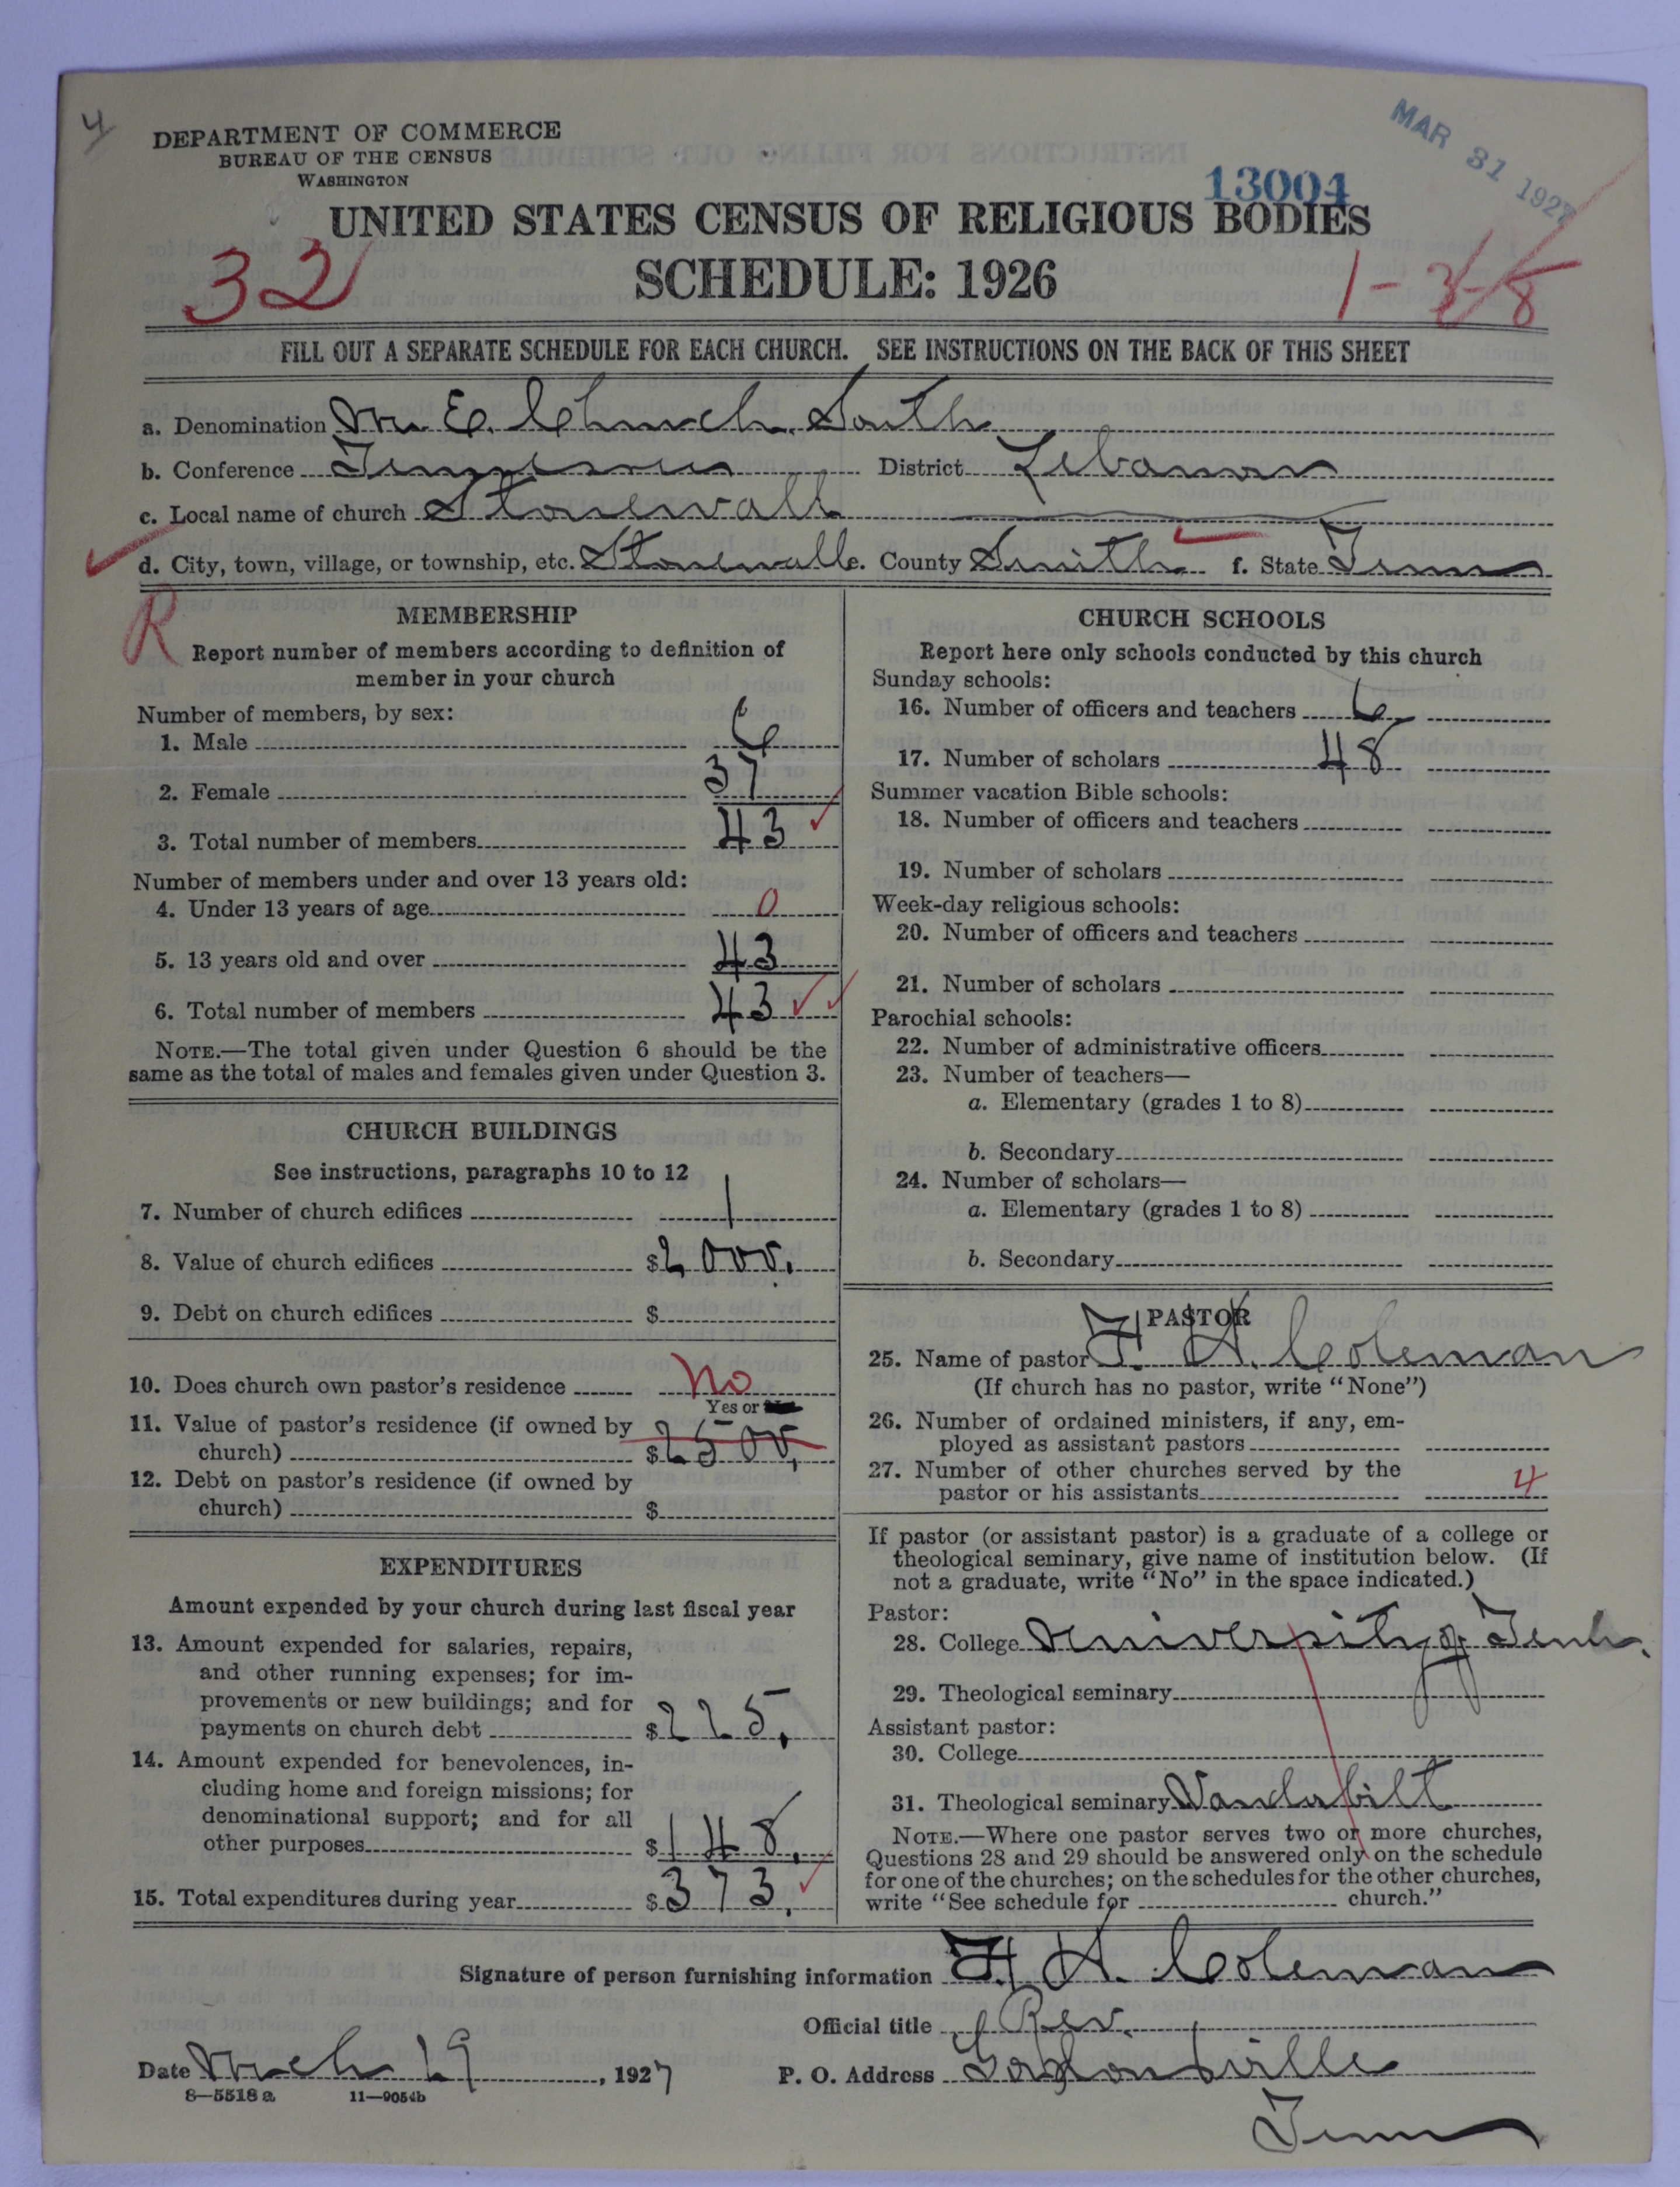 4
DEPARTMENT OF COMMERCE
BUREAU OF THE CENSUS
WASHINGTON
MAR 31 1927
13004
UNITED STATES CENSUS OF RELIGIOUS BODIES
32
SCHEDULE: 1926
1-3-8
FILL OUT A SEPARATE SCHEDULE FOR EACH CHURCH. SEE INSTRUCTIONS ON THE BACK OF THIS SHEET
a. Denomination M. E. Church, South
b. Conference Tennessee District Lebanon
c. Local name of church Stonewall
d. City, town, village, or township, etc. Stonewall e. County Smith f. State Tenn
R
MEMBERSHIP
Report number of members according to definition of
member in your church
Number of members, by sex:
1. Male 6
2. Female 37
3. Total number of members 43
Number of members under and over 13 years old:
4. Under 13 years of age 0
5. 13 years old and over 43
6. Total number of members 43
NOTE.—The total given under Question 6 should be the
same as the total of males and females given under Question 3.
CHURCH BUILDINGS
See instructions, paragraphs 10 to 12
7. Number of church edifices 1
8. Value of church edifices $2000.
9. Debt on church edifices $
10. Does church own pastor's residence No
Yes or
11. Value of pastor's residence (if owned by
church) $2500.
12. Debt on pastor's residence (if owned by
church) $
EXPENDITURES
Amount expended by your church during last fiscal year
13. Amount expended for salaries, repairs,
and other running expenses; for im-
provements or new buildings; and for
payments on church debt $225.
14. Amount expended for benevolences, in-
cluding home and foreign missions; for
denominational support; and for all
other purposes $148.
15. Total expenditures during year $373.
CHURCH SCHOOLS
Report here only schools conducted by this church
Sunday schools:
16. Number of officers and teachers 6
17. Number of scholars 48
Summer vacation Bible schools:
18. Number of officers and teachers
19. Number of scholars
Week-day religious schools:
20. Number of officers and teachers
21. Number of scholars
Parochial schools:
22. Number of administrative officers
23. Number of teachers—
a. Elementary (grades 1 to 8)
b. Secondary
24. Number of scholars—
a. Elementary (grades 1 to 8)
b. Secondary
PASTOR
25. Name of pastor F. A. Coleman
(If church has no pastor, write "None")
26. Number of ordained ministers, if any, em-
ployed as assistant pastors
27. Number of other churches served by the
pastor or his assistants 4
If pastor (or assistant pastor) is a graduate of a college or
theological seminary, give name of institution below. (If
not a graduate, write "No" in the space indicated.)
Pastor:
28. College University of Tenn.
29. Theological seminary
Assistant pastor:
30. College
31. Theological seminary Vanderbilt
NOTE.—Where one pastor serves two or more churches,
Questions 28 and 29 should be answered only on the schedule
for one of the churches; on the schedules for the other churches,
write "See schedule for church."
Signature of person furnishing information F. A. Coleman
Official title Rev.
Date March 29, 1927 P. O. Address Gordonsville
8—5518 a 11—9054b
Tenn